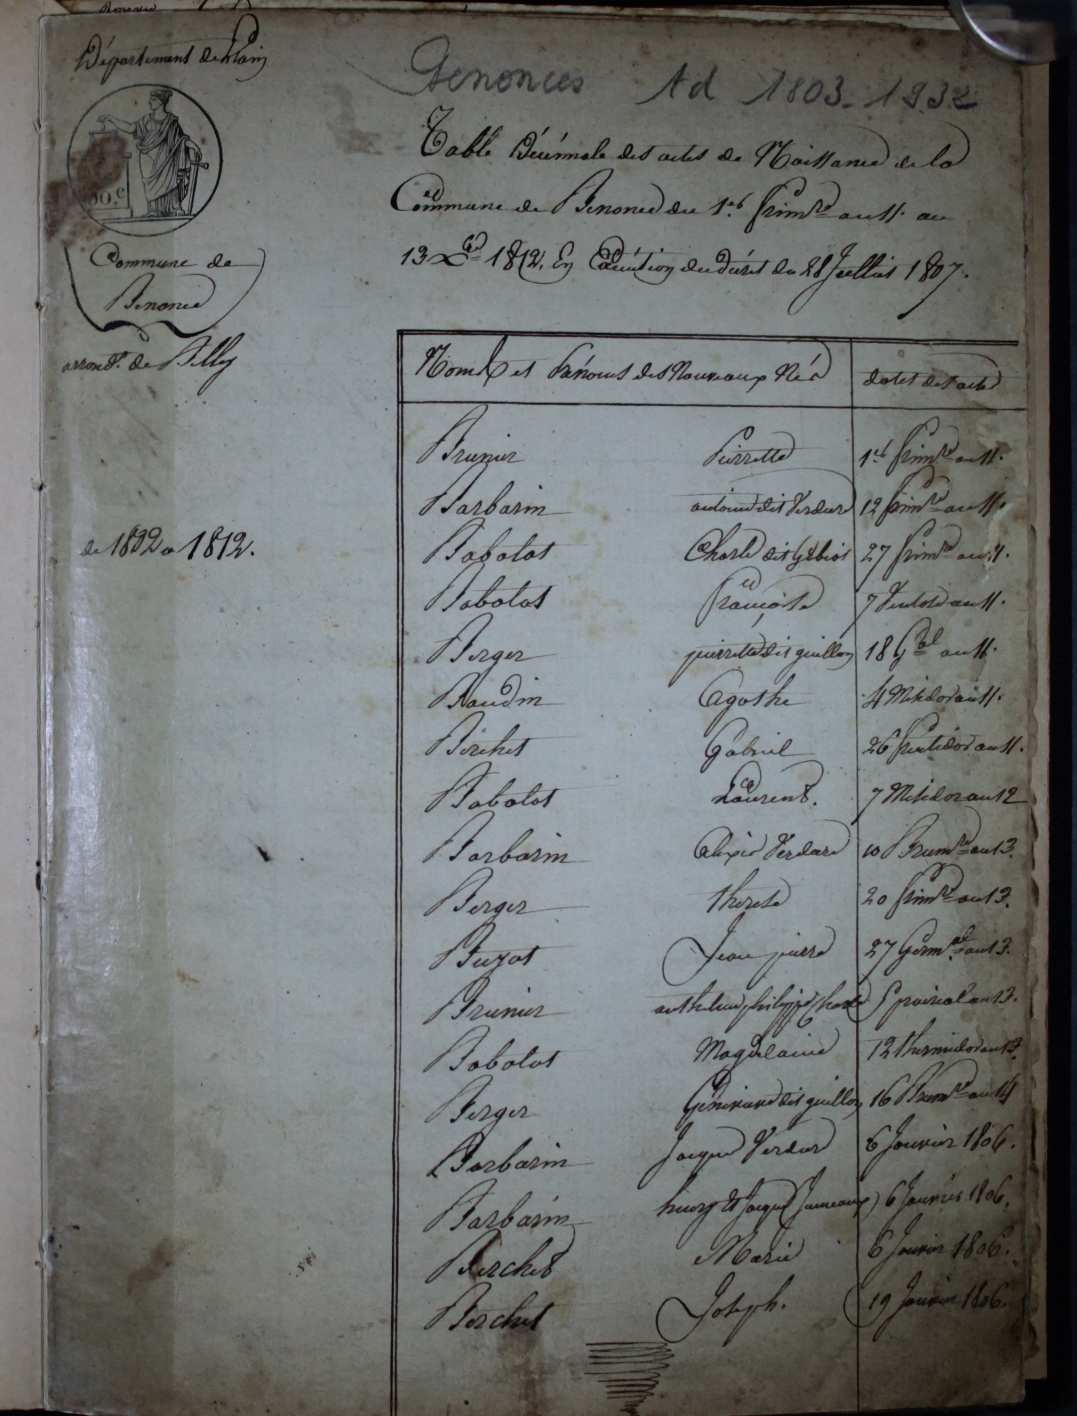 Département de l'ain
Benonces td 1803-1932
Table Décennale des actes de Naissance de la
Commune de Benonce du 1er frimre an 11. au
13 Xbre 1812, En Exécution du Décret du 28 Juillet 1807.
50.c
Commune de
Benonce
arrondt. de Belley
Noms et Prénoms des Nouveaux Nés dates des actes
de 1802 a 1812.
Brunier Pierrette 1er frimre an 11.
Barbarin antoine dit Verdure 12 frimre an 11.
Babolat Charle dit 27 frimre an 11.
Babolat françoise 7 Ventose an 11.
Berger pierrette dit guillon 18 Gal an 11.
Baudin Agathe 4 Messidor an 11.
Berchet Gabriel 26 fructidor an 11.
Babolat Laurent. 7 Messidor an 12
Barbarin Alexis Verdure 10 Brumre an 13.
Berger therese 20 frimre an 13.
Buzat Jean pierre 27 Germal an 13.
Brunier anthelme philippe Charle 5 prairial an 13.
Babolat Magdelaine 12 thermidor an 13.
Berger dit guillon 16 Brumre an 14
Barbarin Jacque Verdure 6 Janvier 1806.
Barbarin henry et Jacque (Jumeaux) 6 Janvier 1806.
Berchet Marie 6 Janvier 1806.
Berchet Joseph. 19 Janvier 1806.